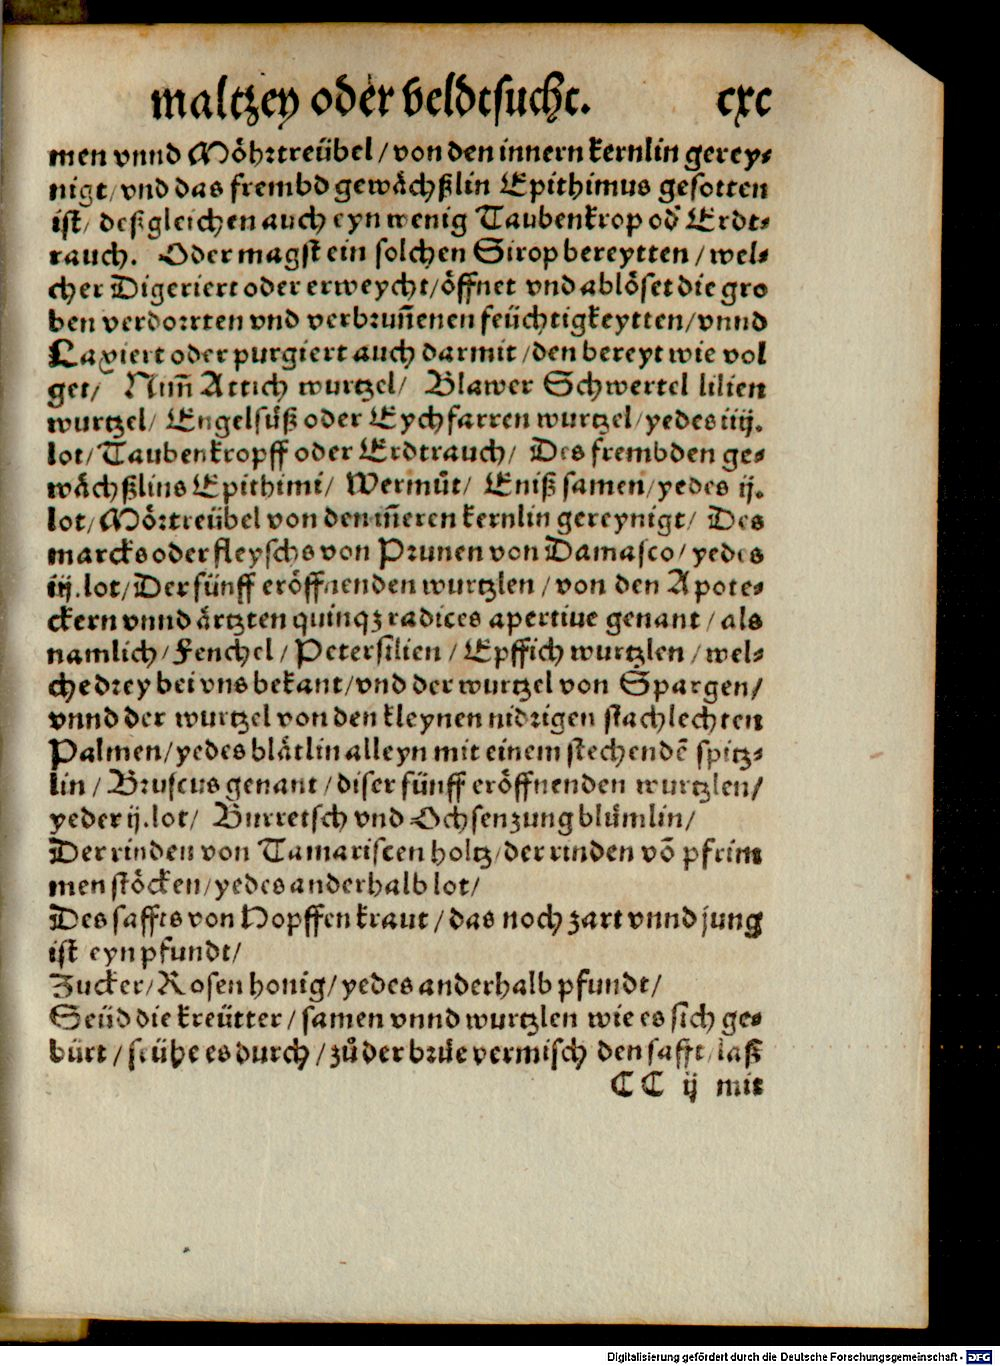 maltzey oder veldtsucht. cxc
men vnnd Möhrtreübel / von den innern kernlin gerey⸗
nigt / vnd das frembd gewächßlin Epithimus gesotten
ist / deßgleichen auch eyn wenig Taubenkrop od' Erdt⸗
rauch. Oder magst ein solchen Sirop bereytten / wel⸗
cher Digeriert oder erweycht / öffnet vnd ablöset die gro
ben verdorrten vnd verbruñenen feüchtigkeytten / vnnd
Laxiert oder purgiert auch darmit / den bereyt wie vol
get / Nim̃ Attich wurtzel / Blawer Schwertel lilien
wurtzel / Engelsüß oder Eychfarren wurtzel / yedes iiij.
lot / Taubenkropff oder Erdtrauch / Des frembden ge⸗
wächßlins Epithimi / Wermůt / Eniß samen / yedes ij.
lot / Mörtreübel von den iñeren kernlin gereynigt / Des
marcks oder fleyschs von Prunen von Damasco / yedes
iij. lot / Der fünff eröffnenden wurtzlen / von den Apote⸗
ckern vnnd ärtzten quinqȝ radices apertiue genant / als
namlich / Fenchel / Petersilien / Epffich wurtzlen / wel⸗
che drey bei vns bekant / vnd der wurtzel von Spargen /
vnnd der wurtzel von den kleynen nidrigen stachlechten
Palmen / yedes blätlin alleyn mit einem stechendē spitz⸗
lin / Bruscus genant / diser fünff eröffnenden wurtzlen /
yeder ij. lot / Burretsch vnd Ochsenzung blůmlin /
Der rinden von Tamariscen holtz / der rinden vō pfrim
men stöcken / yedes anderhalb lot /
Des saffts von Hopffen kraut / das noch zart vnnd jung
ist eyn pfundt /
Zucker / Rosen honig / yedes anderhalb pfundt /
Seüd die kreütter / samen vnnd wurtzlen wie es sich ge⸗
bürt / seühe es durch / zů der brüe vermisch den safft / laß
CC ij mit
Digitalisierung gefördert durch die Deutsche Forschungsgemeinschaft - DFG